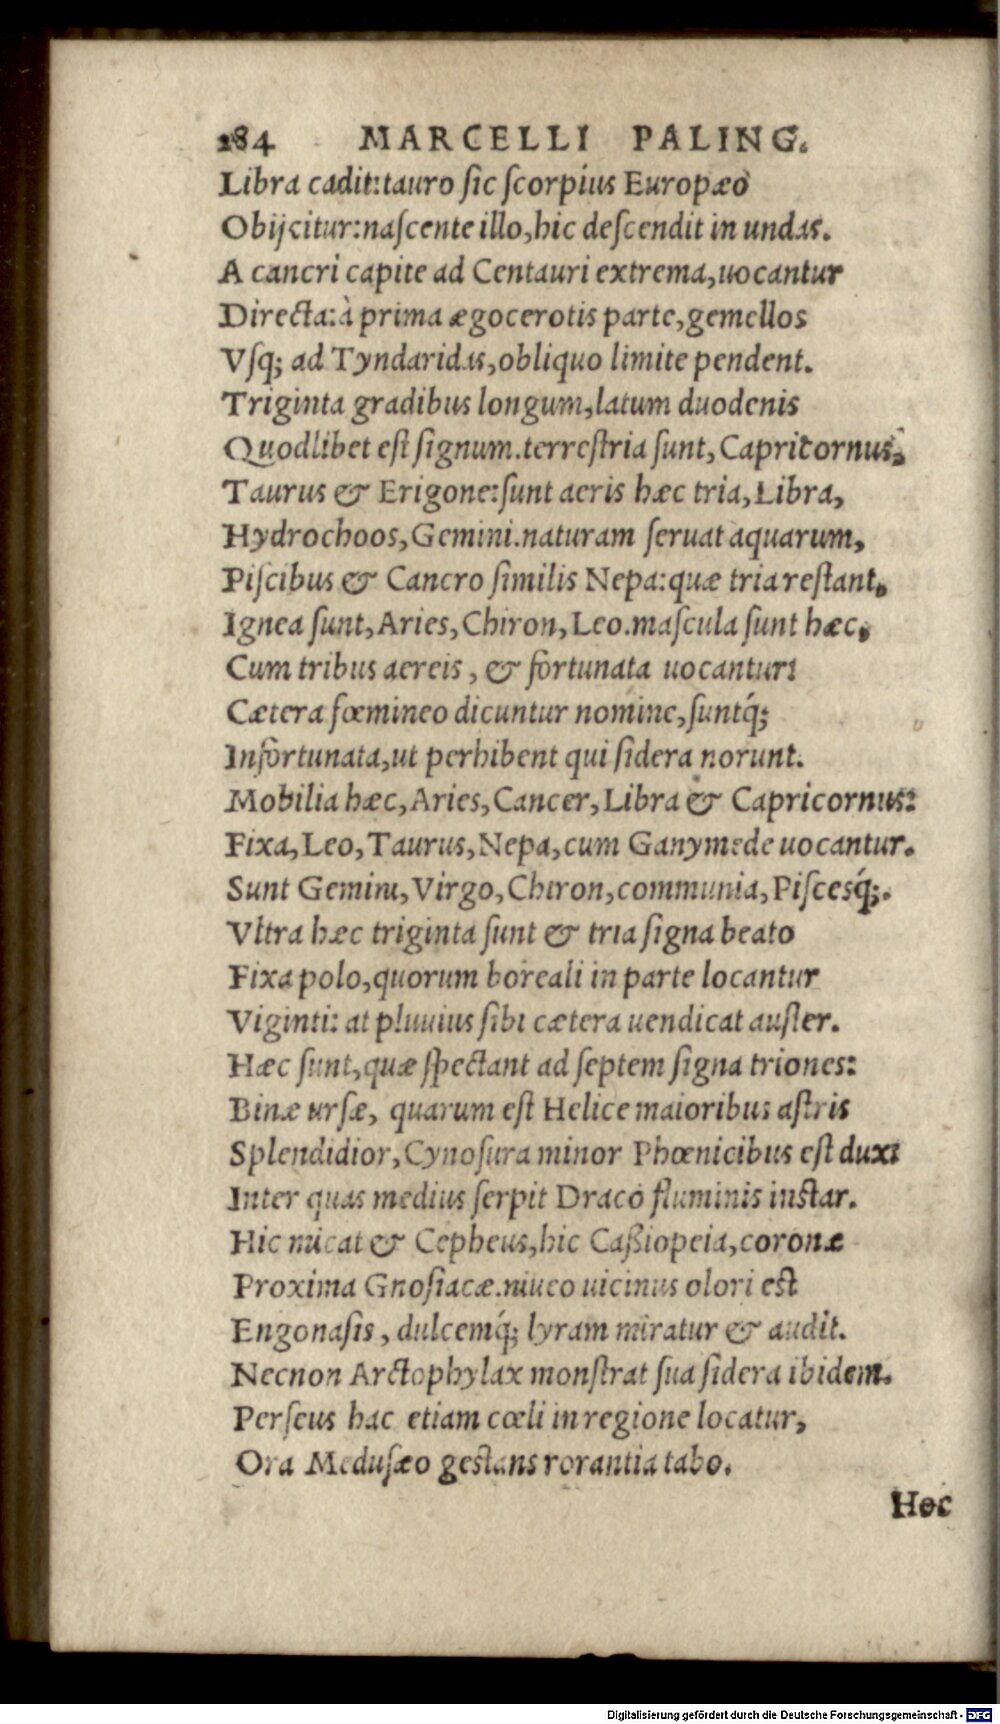 284 MARCELLI PALING.
Libra cadit: tauro sic scorpius Europæo
Obijcitur: nascente illo, hic descendit in undas.
A cancri capite ad Centauri extrema, uocantur
Directa: à prima ægocerotis parte, gemellos
Vsq; ad Tyndaridas, obliquo limite pendent.
Triginta gradibus longum, latum duodenis
Quodlibet est signum. terrestria sunt, Capricornus,
Taurus & Erigone: sunt aeris hæc tria, Libra,
Hydrochoos, Gemini. naturam seruat aquarum,
Piscibus & Cancro similis Nepa: quæ tria restant,
Ignea sunt, Aries, Chiron, Leo. mascula sunt hæc,
Cum tribus aereis, & fortunata uocantur:
Cætera fœmineo dicuntur nomine, suntq́;
Infortunata, ut perhibent qui sidera norunt.
Mobilia hæc, Aries, Cancer, Libra & Capricornus:
Fixa, Leo, Taurus, Nepa, cum Ganymede uocantur.
Sunt Gemini, Virgo, Chiron, communia, Piscesq́;.
Vltra hæc triginta sunt & tria signa beato
Fixa polo, quorum boreali in parte locantur
Viginti: at pluuius sibi cætera uendicat auster.
Hæc sunt, quæ spectant ad septem signa triones:
Binæ ursæ, quarum est Helice maioribus astris
Splendidior, Cynosura minor Phœnicibus est dux:
Inter quas medius serpit Draco fluminis instar.
Hic micat & Cepheus, hic Caßiopeia, coronæ
Proxima Gnosiacæ. niueo uicinus olori est
Engonasis, dulcemq́; lyram miratur & audit.
Necnon Arctophylax monstrat sua sidera ibidem.
Perseus hac etiam cœli in regione locatur,
Ora Medusæo gestans rorantia tabo.
Hoc
Digitalisierung gefördert durch die Deutsche Forschungsgemeinschaft - DFG